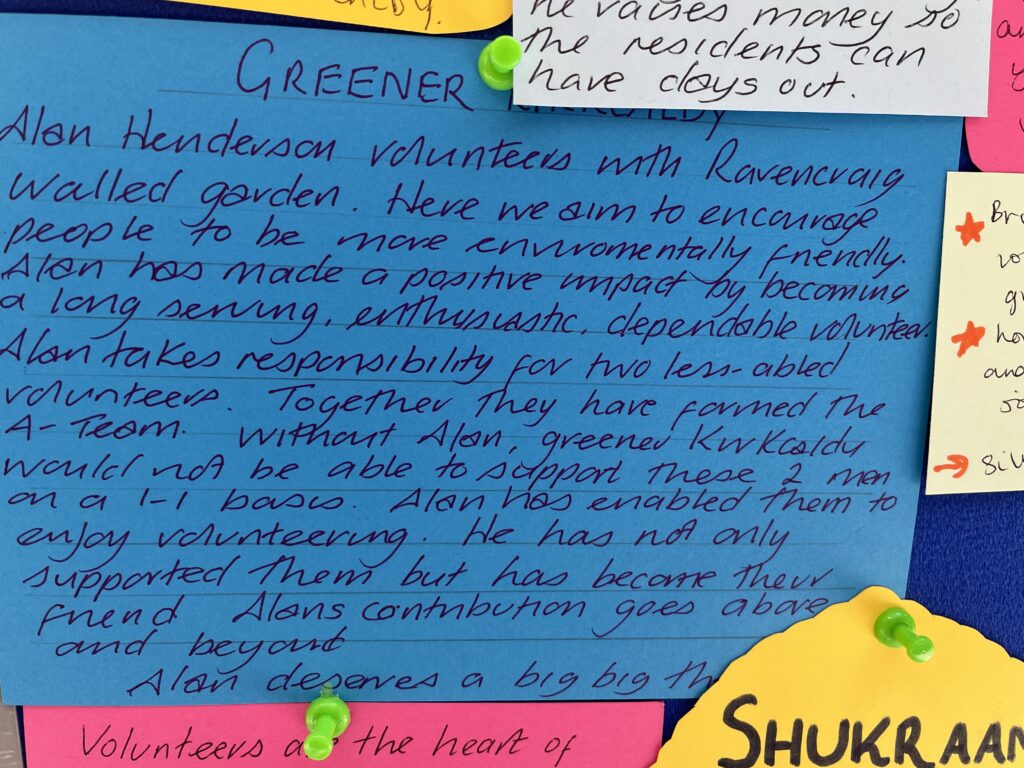 he raises money so
the residents can
have days out.
GREENER
Alan Henderson volunteers with Ravencraig
walled garden. Here we aim to encourage
people to be more enviromentally friendly.
Alan has made a positive impact by becoming
a long serving, enthusiastic, dependable volunteer.
Alan takes responsibility for two less-abled
volunteers. Together they have formed the
A-Team. Without Alan, greener Kirkcaldy
would not be able to support these 2 men
on a 1-1 basis. Alan has enabled them to
enjoy volunteering. He has not only
supported them but has become their
friend. Alans contribution goes above
and beyond
Alan deserves a big big th
Volunteers are the heart of
SHUKRAAN